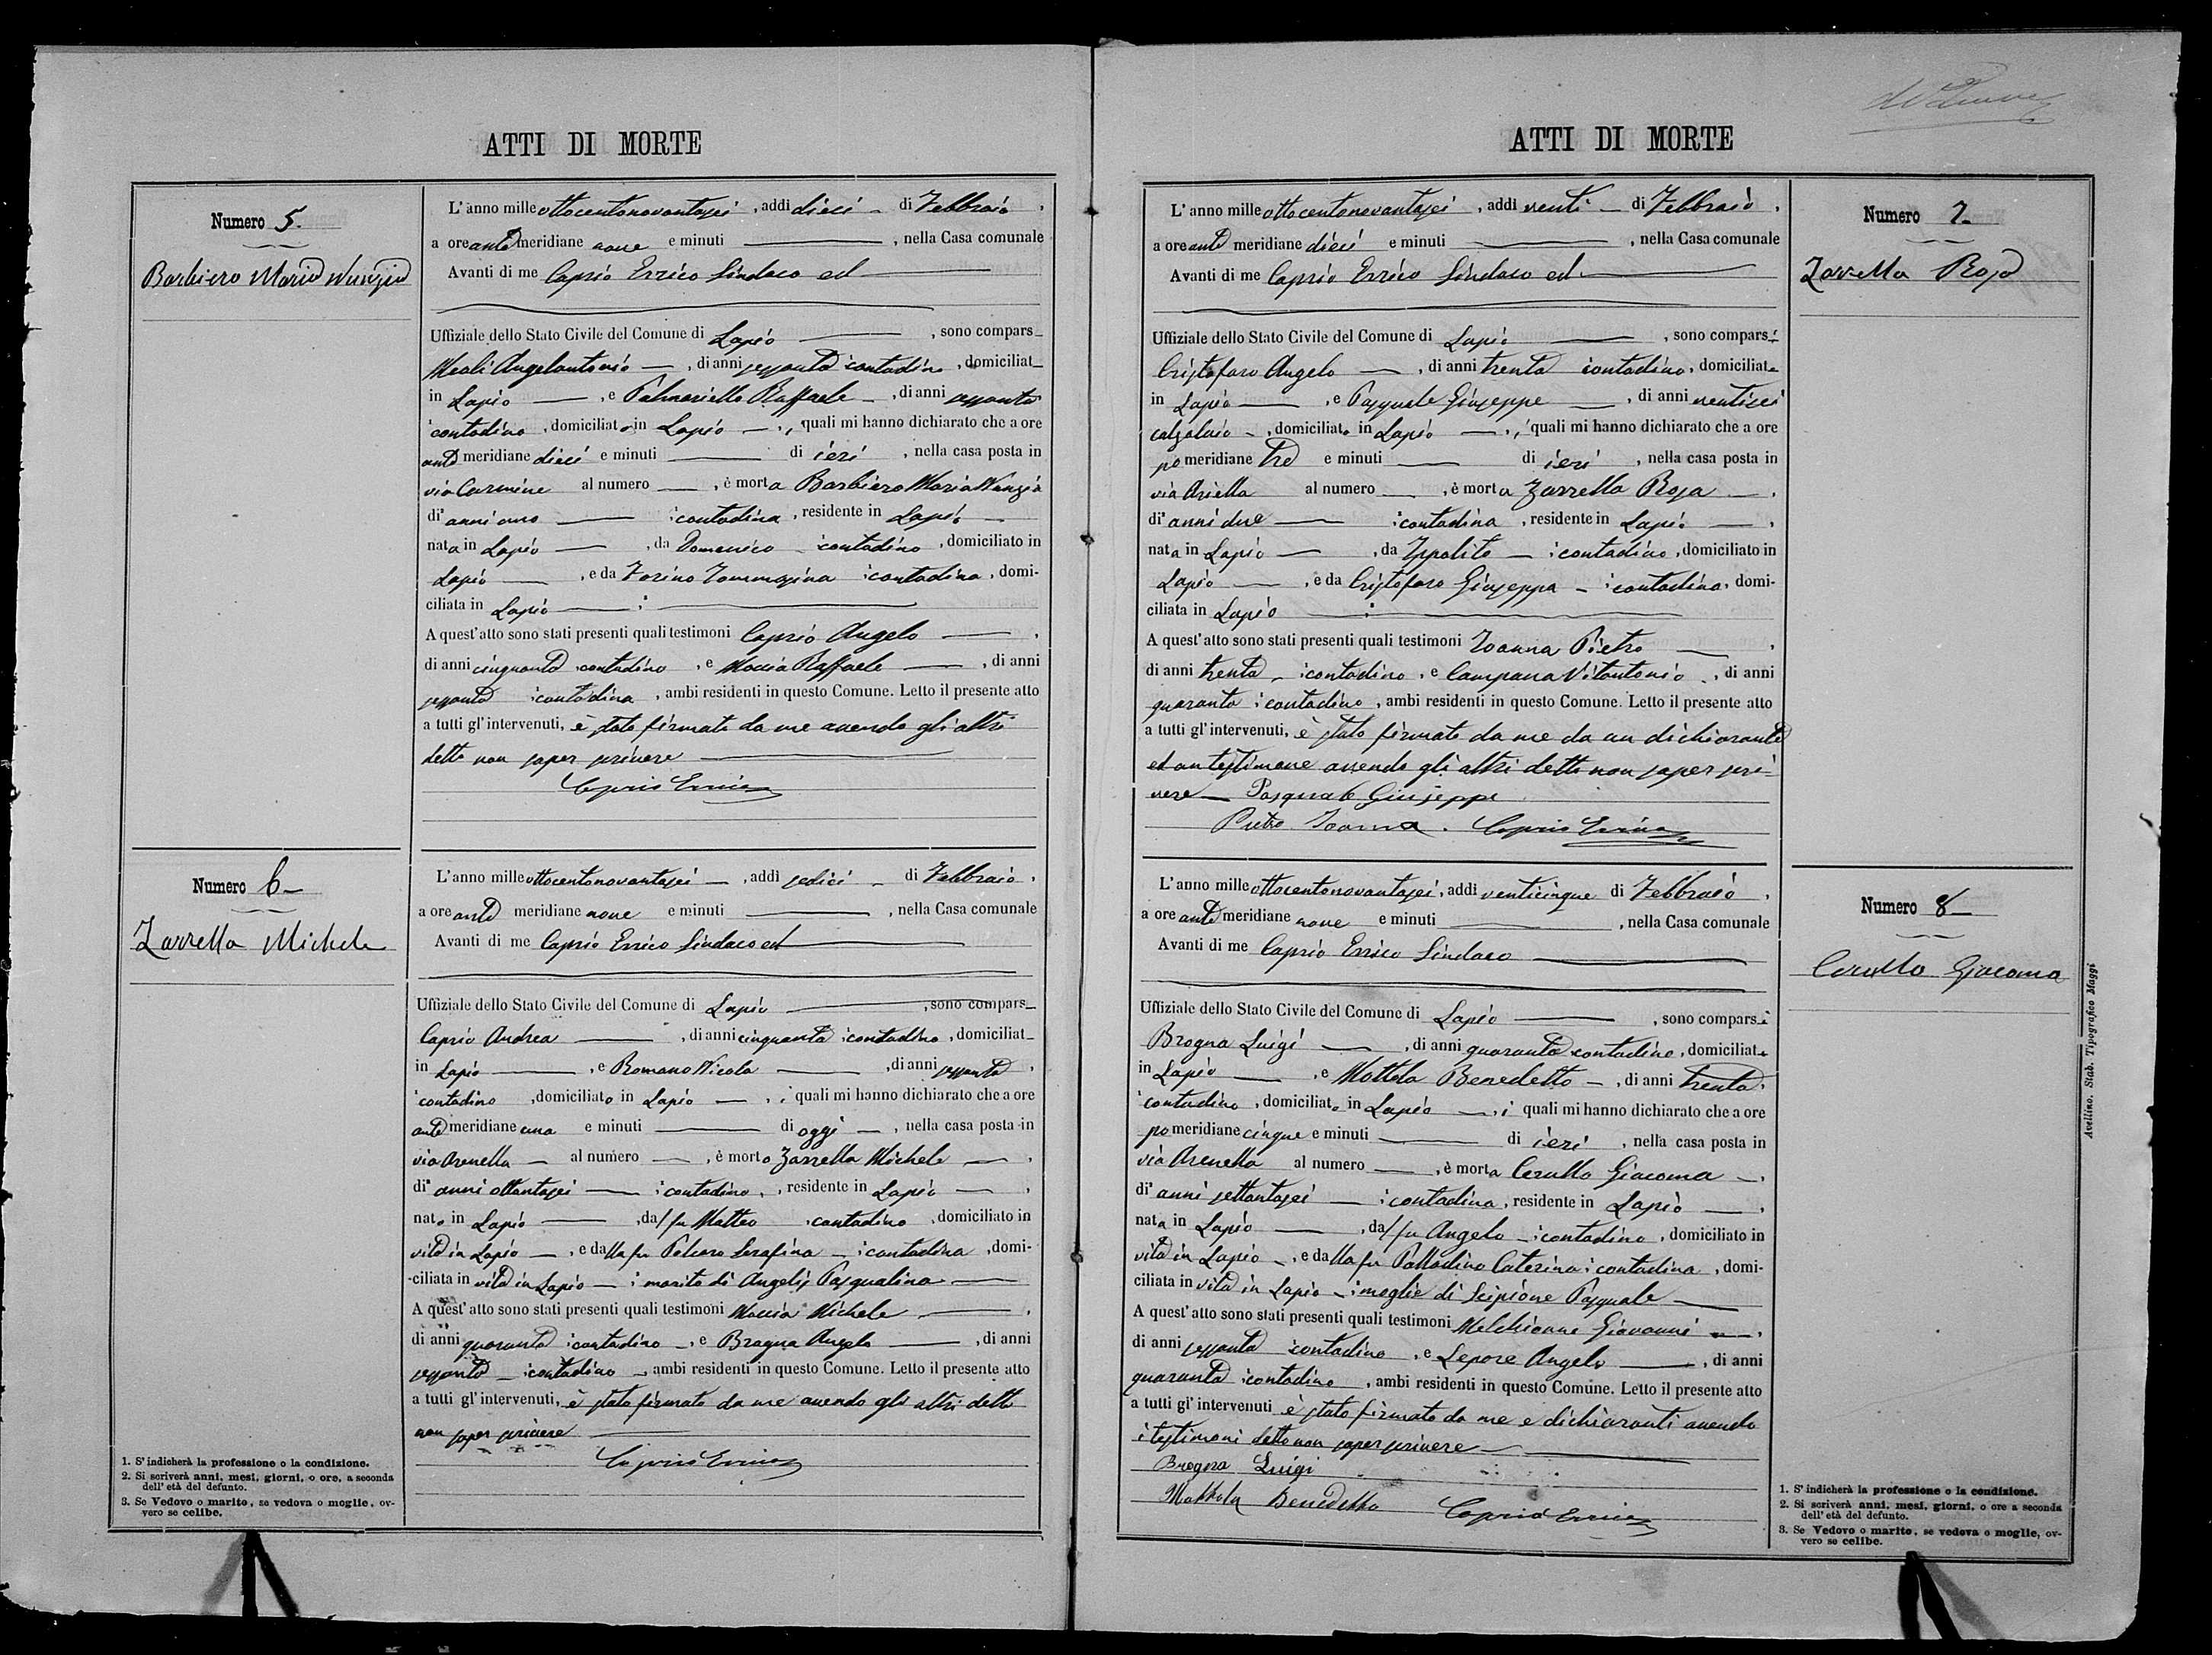 ATTI DI MORTE
Numero 5.
Barbiero Maria Nunzia
L'anno mille ottocentonovantasei, addì dieci di Febbraio,
a ore ante meridiane nove e minuti, nella Casa comunale
Avanti di me Caprio Errico Sindaco ed
Uffiziale dello Stato Civile del Comune di Lapio, sono compars
Meoli Angelantonio, di anni sessanta contadino, domiciliat
in Lapio, e Palmariello Raffaele, di anni sessanta
contadino, domiciliato in Lapio, i quali mi hanno dichiarato che a ore
ante meridiane dieci e minuti di ieri, nella casa posta in
via Carmine al numero, è morta Barbiero Maria Nunzia
di anni uno contadina, residente in Lapio
nata in Lapio, da Domenico contadino, domiciliato in
Lapio, e da Forino Tommasina contadina, domi-
ciliata in Lapio
A quest'atto sono stati presenti quali testimoni Caprio Angelo,
di anni cinquanta contadino, e Moccia Raffaele, di anni
sessanta contadino, ambi residenti in questo Comune. Letto il presente atto
a tutti gl'intervenuti, è stato firmato da me avendo gli altri
detto non saper scrivere
Caprio Errico
Numero 6
Zarrella Michele
L'anno mille ottocentonovantasei, addì sedici di Febbraio,
a ore ante meridiane nove e minuti, nella Casa comunale
Avanti di me Caprio Errico Sindaco ed
Uffiziale dello Stato Civile del Comune di Lapio, sono compars
Caprio Andrea, di anni cinquanta contadino, domiciliat
in Lapio, e Romano Nicola, di anni sessanta,
contadino, domiciliato in Lapio, i quali mi hanno dichiarato che a ore
ante meridiane una e minuti di oggi, nella casa posta in
via Arenella al numero, è morto Zarrella Michele,
di anni ottantasei contadino, residente in Lapio,
nato in Lapio, dal fu Matteo contadino, domiciliato in
vita in Lapio, e dalla fu Serafina contadina, domi-
ciliata in vita in Lapio marito di Angelis Pasqualina
A quest'atto sono stati presenti quali testimoni Moccia Michele,
di anni quaranta contadino, e Brogna Angelo, di anni
sessanta contadino, ambi residenti in questo Comune. Letto il presente atto
a tutti gl'intervenuti, è stato firmato da me avendo gli altri detto
non saper scrivere
Caprio Errico
1. S'indicherà la professione o la condizione.
2. Si scriverà anni, mesi, giorni, o ore, a seconda
dell'età del defunto.
3. Se Vedovo o marito, se vedova o moglie, ov-
vero se celibe.
ATTI DI MORTE
Numero 7
Zarrella Rosa
L'anno mille ottocentonovantasei, addì venti di Febbraio,
a ore ante meridiane dieci e minuti, nella Casa comunale
Avanti di me Caprio Errico Sindaco ed
Uffiziale dello Stato Civile del Comune di Lapio, sono comparsi
Cristofaro Angelo, di anni trenta contadino, domiciliato
in Lapio, e Pasquale Giuseppe, di anni ventisei
calzolaio, domiciliato in Lapio, i quali mi hanno dichiarato che a ore
pomeridiane tre e minuti di ieri, nella casa posta in
via Ariella al numero, è morta Zarrella Rosa,
di anni due contadina, residente in Lapio,
nata in Lapio, da Ippolito contadino, domiciliato in
Lapio, e da Cristofaro Giuseppa contadina, domi-
ciliata in Lapio
A quest'atto sono stati presenti quali testimoni Ioanna Pietro,
di anni trenta contadino, e Campana Vitantonio, di anni
quaranta contadino, ambi residenti in questo Comune. Letto il presente atto
a tutti gl'intervenuti, è stato firmato da me da un dichiarante
ed un testimone avendo gli altri detto non saper scri-
vere Pasquale Giuseppe
Pietro Ioanna. Caprio Errico
Numero 8
Cerullo Giacoma
L'anno mille ottocentonovantasei, addì venticinque di Febbraio,
a ore ante meridiane nove e minuti, nella Casa comunale
Avanti di me Caprio Errico Sindaco
Uffiziale dello Stato Civile del Comune di Lapio, sono comparsi
Brogna Luigi, di anni quaranta contadino, domiciliato
in Lapio, e Mottola Benedetto, di anni trenta,
contadino, domiciliato in Lapio, i quali mi hanno dichiarato che a ore
pomeridiane cinque e minuti di ieri, nella casa posta in
via Arenella al numero, è morta Cerullo Giacoma,
di anni settantasei contadina, residente in Lapio,
nata in Lapio, dal fu Angelo contadino, domiciliato in
vita in Lapio, e dalla fu Palladino Caterina contadina, domi-
ciliata in vita in Lapio moglie di Scipione Pasquale
A quest'atto sono stati presenti quali testimoni Melchionne Giovanni,
di anni sessanta contadino, e Lepore Angelo, di anni
quaranta contadino, ambi residenti in questo Comune. Letto il presente atto
a tutti gl'intervenuti è stato firmato da me e dichiaranti avendo
i testimoni detto non saper scrivere
Brogna Luigi
Mottola Benedetto Caprio Errico
1. S'indicherà la professione o la condizione.
2. Si scriverà anni, mesi, giorni, o ore a seconda
dell'età del defunto.
3. Se Vedovo o marito, se vedova o moglie, ov-
vero se celibe.
Avellino. Stab. Tipografico Maggi